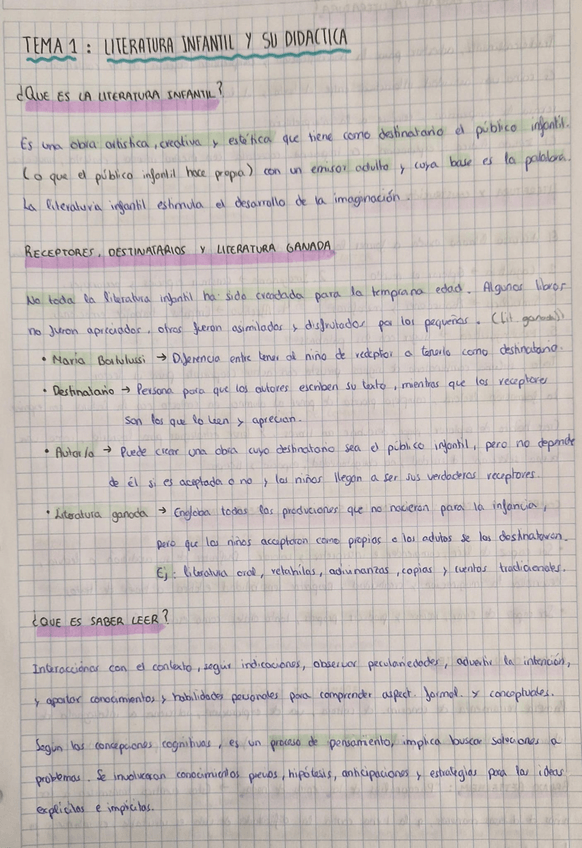 TEMA 1 : LITERATURA INFANTIL Y SU DIDACTICA
¿QUE ES LA LITERATURA INFANTIL?
Es una obra artistica, creativa y estética que tiene como destinatario el público infantil.
(o que el público infantil hace propia) con un emisor adulto y cuya base es la palabra.
La literatura infantil estimula el desarrollo de la imaginación.
RECEPTORES, DESTINATARIOS Y LITERATURA GANADA
No toda la literatura infantil ha sido creadada para la temprana edad. Algunos libros
no fueron apreciados, otros fueron asimilados y disfrutados por los pequeños. (Lit ganada)
• Maria Bortolussi → Diferencia entre tener al niño de receptor a tenerlo como destinatario.
• Destinatario → Persona para que los autores escriben su texto, mientras que los receptores
son los que lo leen y aprecian.
• Autor/a → Puede crear una obra cuyo destinatario sea el público infantil, pero no depende
de él si es aceptada o no y los niños llegan a ser sus verdaderos receptores.
• Literatura ganada → Engloba todas las produciones que no nacieron para la infancia,
pero que los niños acceptaron como propios a los adultos se las destinataron.
Ej: literatura oral, retahilas, adivinanzas, coplas y cuentos tradicionales.
¿QUE ES SABER LEER?
Interaccionar con el contexto, seguir indicaciones, observar peculariedades, advertir la intención,
y aportar conocimientos y habilidades personales para comprender aspect. formal. y conceptuales.
Segun las concepciones cognitivas, es un proceso de pensamiento, implica buscar soluciones a
problemas. Se involucran conocimientos previos, hipótesis, anticipaciones y estrategias para las ideas
explicitas e implicitas.